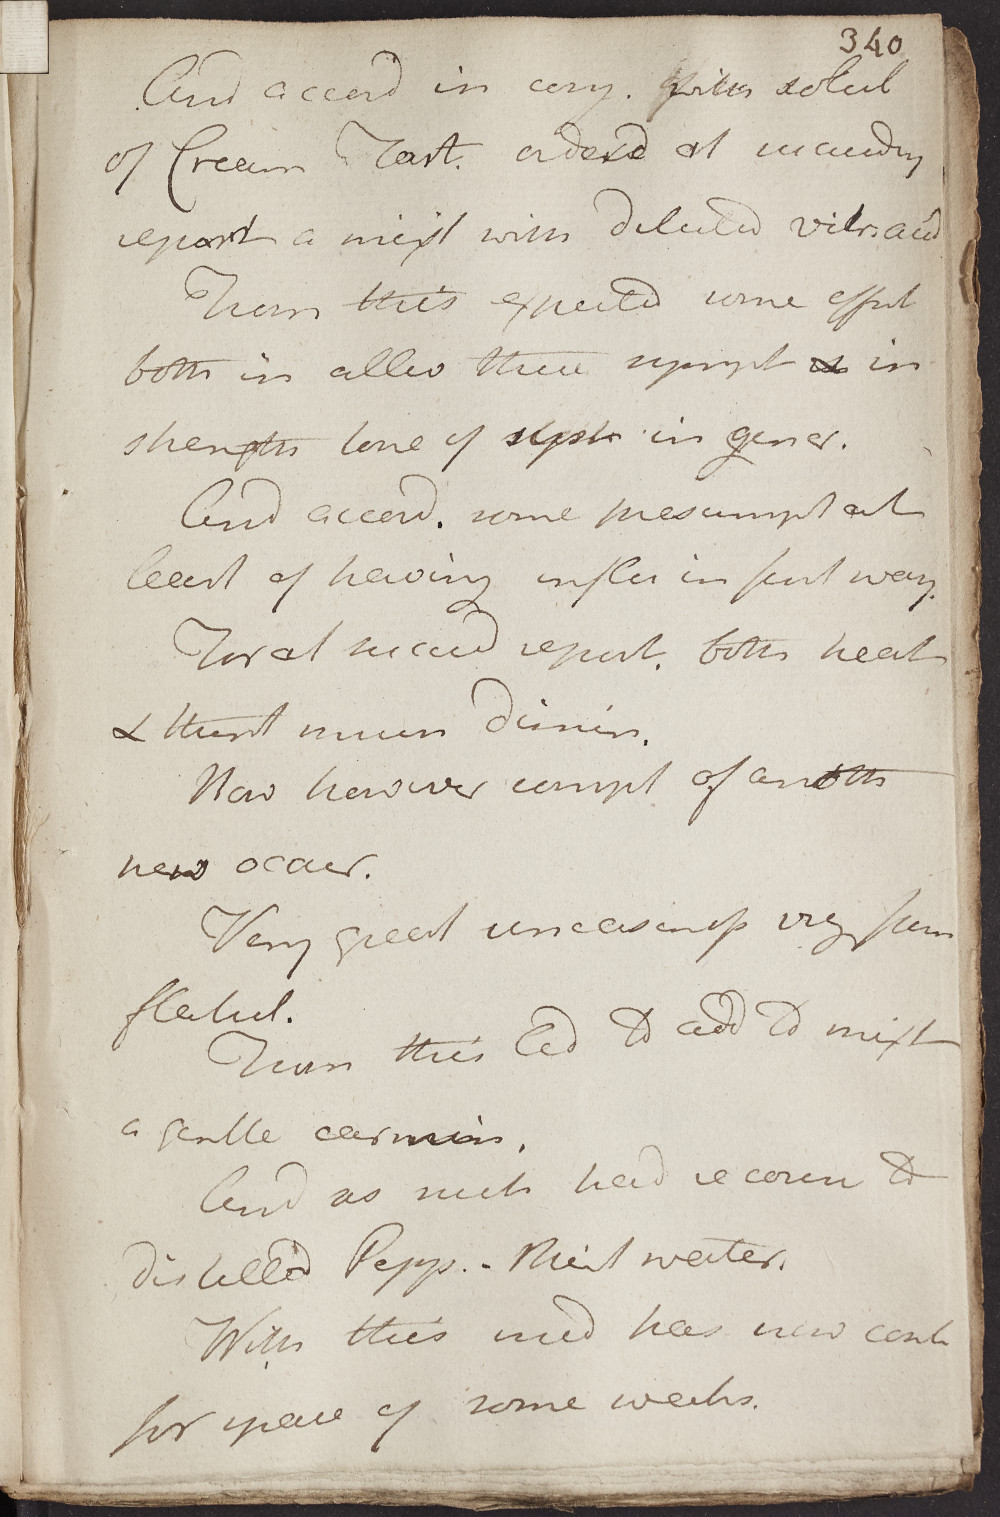 340
And accord in conj. with solut
of Cream Tart. orderd at
report a mixt with diluted vitr. acid
From this expected some effect
both in allev these sympt & in
strength tone of syst in gener.
And accord. some presumpt at
least of having influ in last way.
For at second report. both heat
& thirst much dimin.
Now however compl of anoth
new occur.
Very great uneasiness very
flatul.
From this led to add to mixt
a gentle carmin.
And as such had recourse to
distilled Pepp. - Mint water.
With this med has now cont
for space of some weeks.